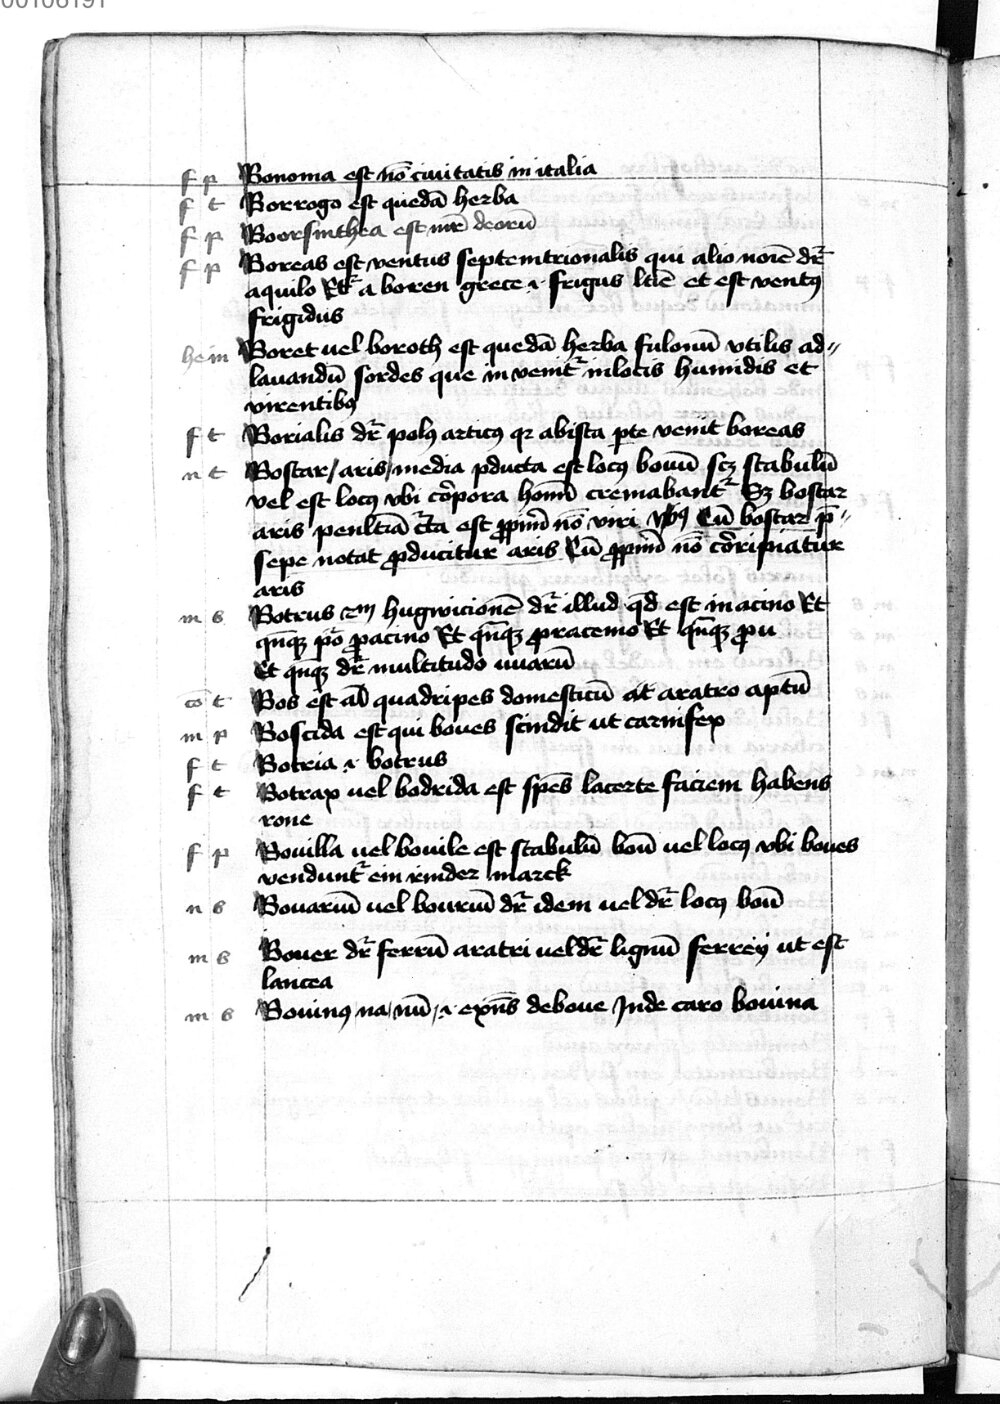 00106191
f p Bonoma est nō ciuitatis in italia
f t Borrogo est quedā herba
f p Boorsinthea est mr̄ deorū
f p Boreas est ventus septemtrionalis qui alio noīe dr̄
aquilo Et a boren grece .i. frigus ltīe et est ventꝯ
frigidus
he in Boret uel boroth est quedā herba fulonū vtilis ad〃
lauandū sordes que in venit᷑ in locis humidis et
virentibꝯ
f t Borialis dr̄ polꝯ articꝯ qꝛ ab ista ꝑte venit boreas
n t Bostar / aris / media ꝓducta est locꝯ bouū scꝫ stabulū
vel est locꝯ vbi cōrpora homī cremabant᷑ Sꝫ bostar
aris penltīa c̄ta est ꝓpriū nō viri Cū bostar p̄〃
sepe notat ꝓducitur aris Cū ꝓpriū nō cōripiatur
aris
m s Botrus cm̄ hugwicionē dr̄ illud qd̄ est in acino Et
qn̄qꝫ pō ꝓ acino Et qn̄qꝫ ꝓ racemo Et qn̄qꝫ ꝓ u
Et qn̄qꝫ dr̄ multitudo uuarū
cō t Bos est aīl quadripes domesticū at aratro aptū
m p Boscida est qui boues scindit ut carnifex
f t Botria .i. botrus
f t Botrax uel bodrida est spēs lacerte faciem habens
rone
f p Bouilla uel bouile est stabulū boū uel locꝯ vbi boues
vendunt᷑ ein rinder marck
n s Bouariū uel bouriū dr̄ idem uel dr̄ locꝯ boū
m s Bouer dr̄ ferrū aratri uel dr̄ lignū ferrey ut est
lancea
m s Bouinꝯ / na / nū / .i. exn̄s de boue Inde caro bouina